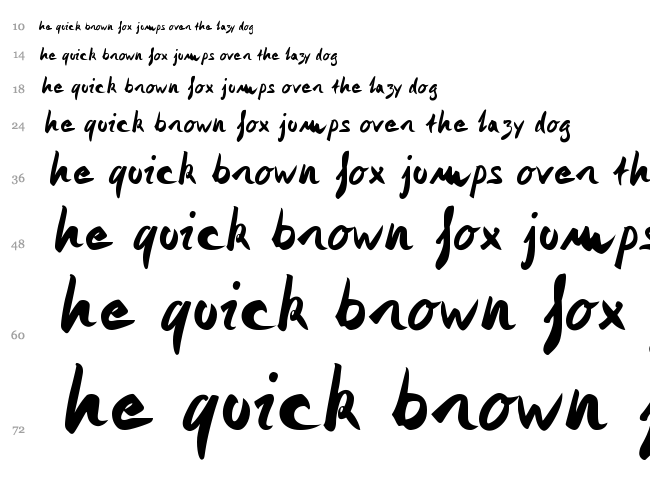 10 he quick brown fox jumps over the lazy dog
14 he quick brown fox jumps over the lazy dog
18 he quick brown fox jumps over the lazy dog
24 he quick brown fox jumps over the lazy dog
36 he quick brown fox jumps over th
48 he quick brown fox jumps
60 he quick brown fox
72 he quick brown